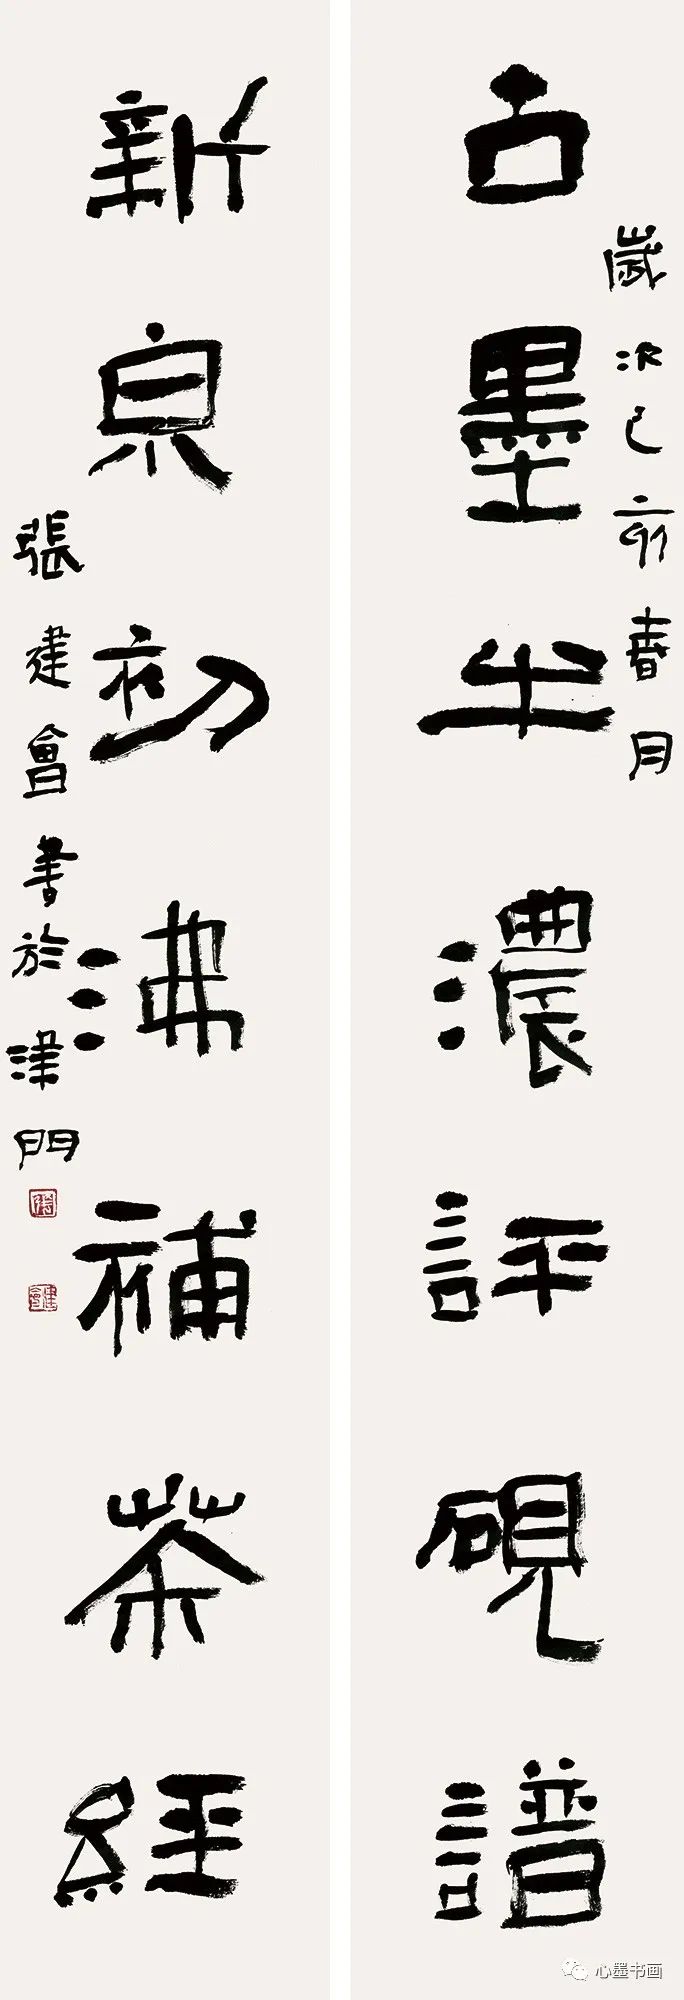 古墨生濃評硯譜
歲次己亥春月
新泉初沸補茶經
張建會書於津門
心墨书画